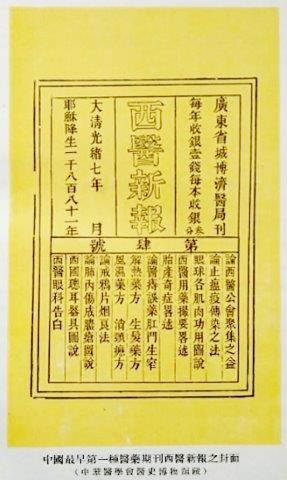 廣東省城博濟醫局刊
每年收銀壹錢每本收銀叁分
西醫新報
大清光緒七年 月
耶穌降生一千八百八十一年
第肆號
論西醫公會聚集之益
論止瘟疫傳染之法
眼球各肌肉功用圖說
西醫用藥撮要畧述
胎產奇症畧述
論醫痔誤藥肛門生窄
解熱藥方 生髮藥方
風濕藥方 消頭方
論戒鴉片烟良法
論肺內傷成膿瘡圖說
西國聰耳器具圖說
西醫眼科告白
中國最早第一種醫藥期刊西醫新報之封面
(中華醫學會醫史博物館藏)